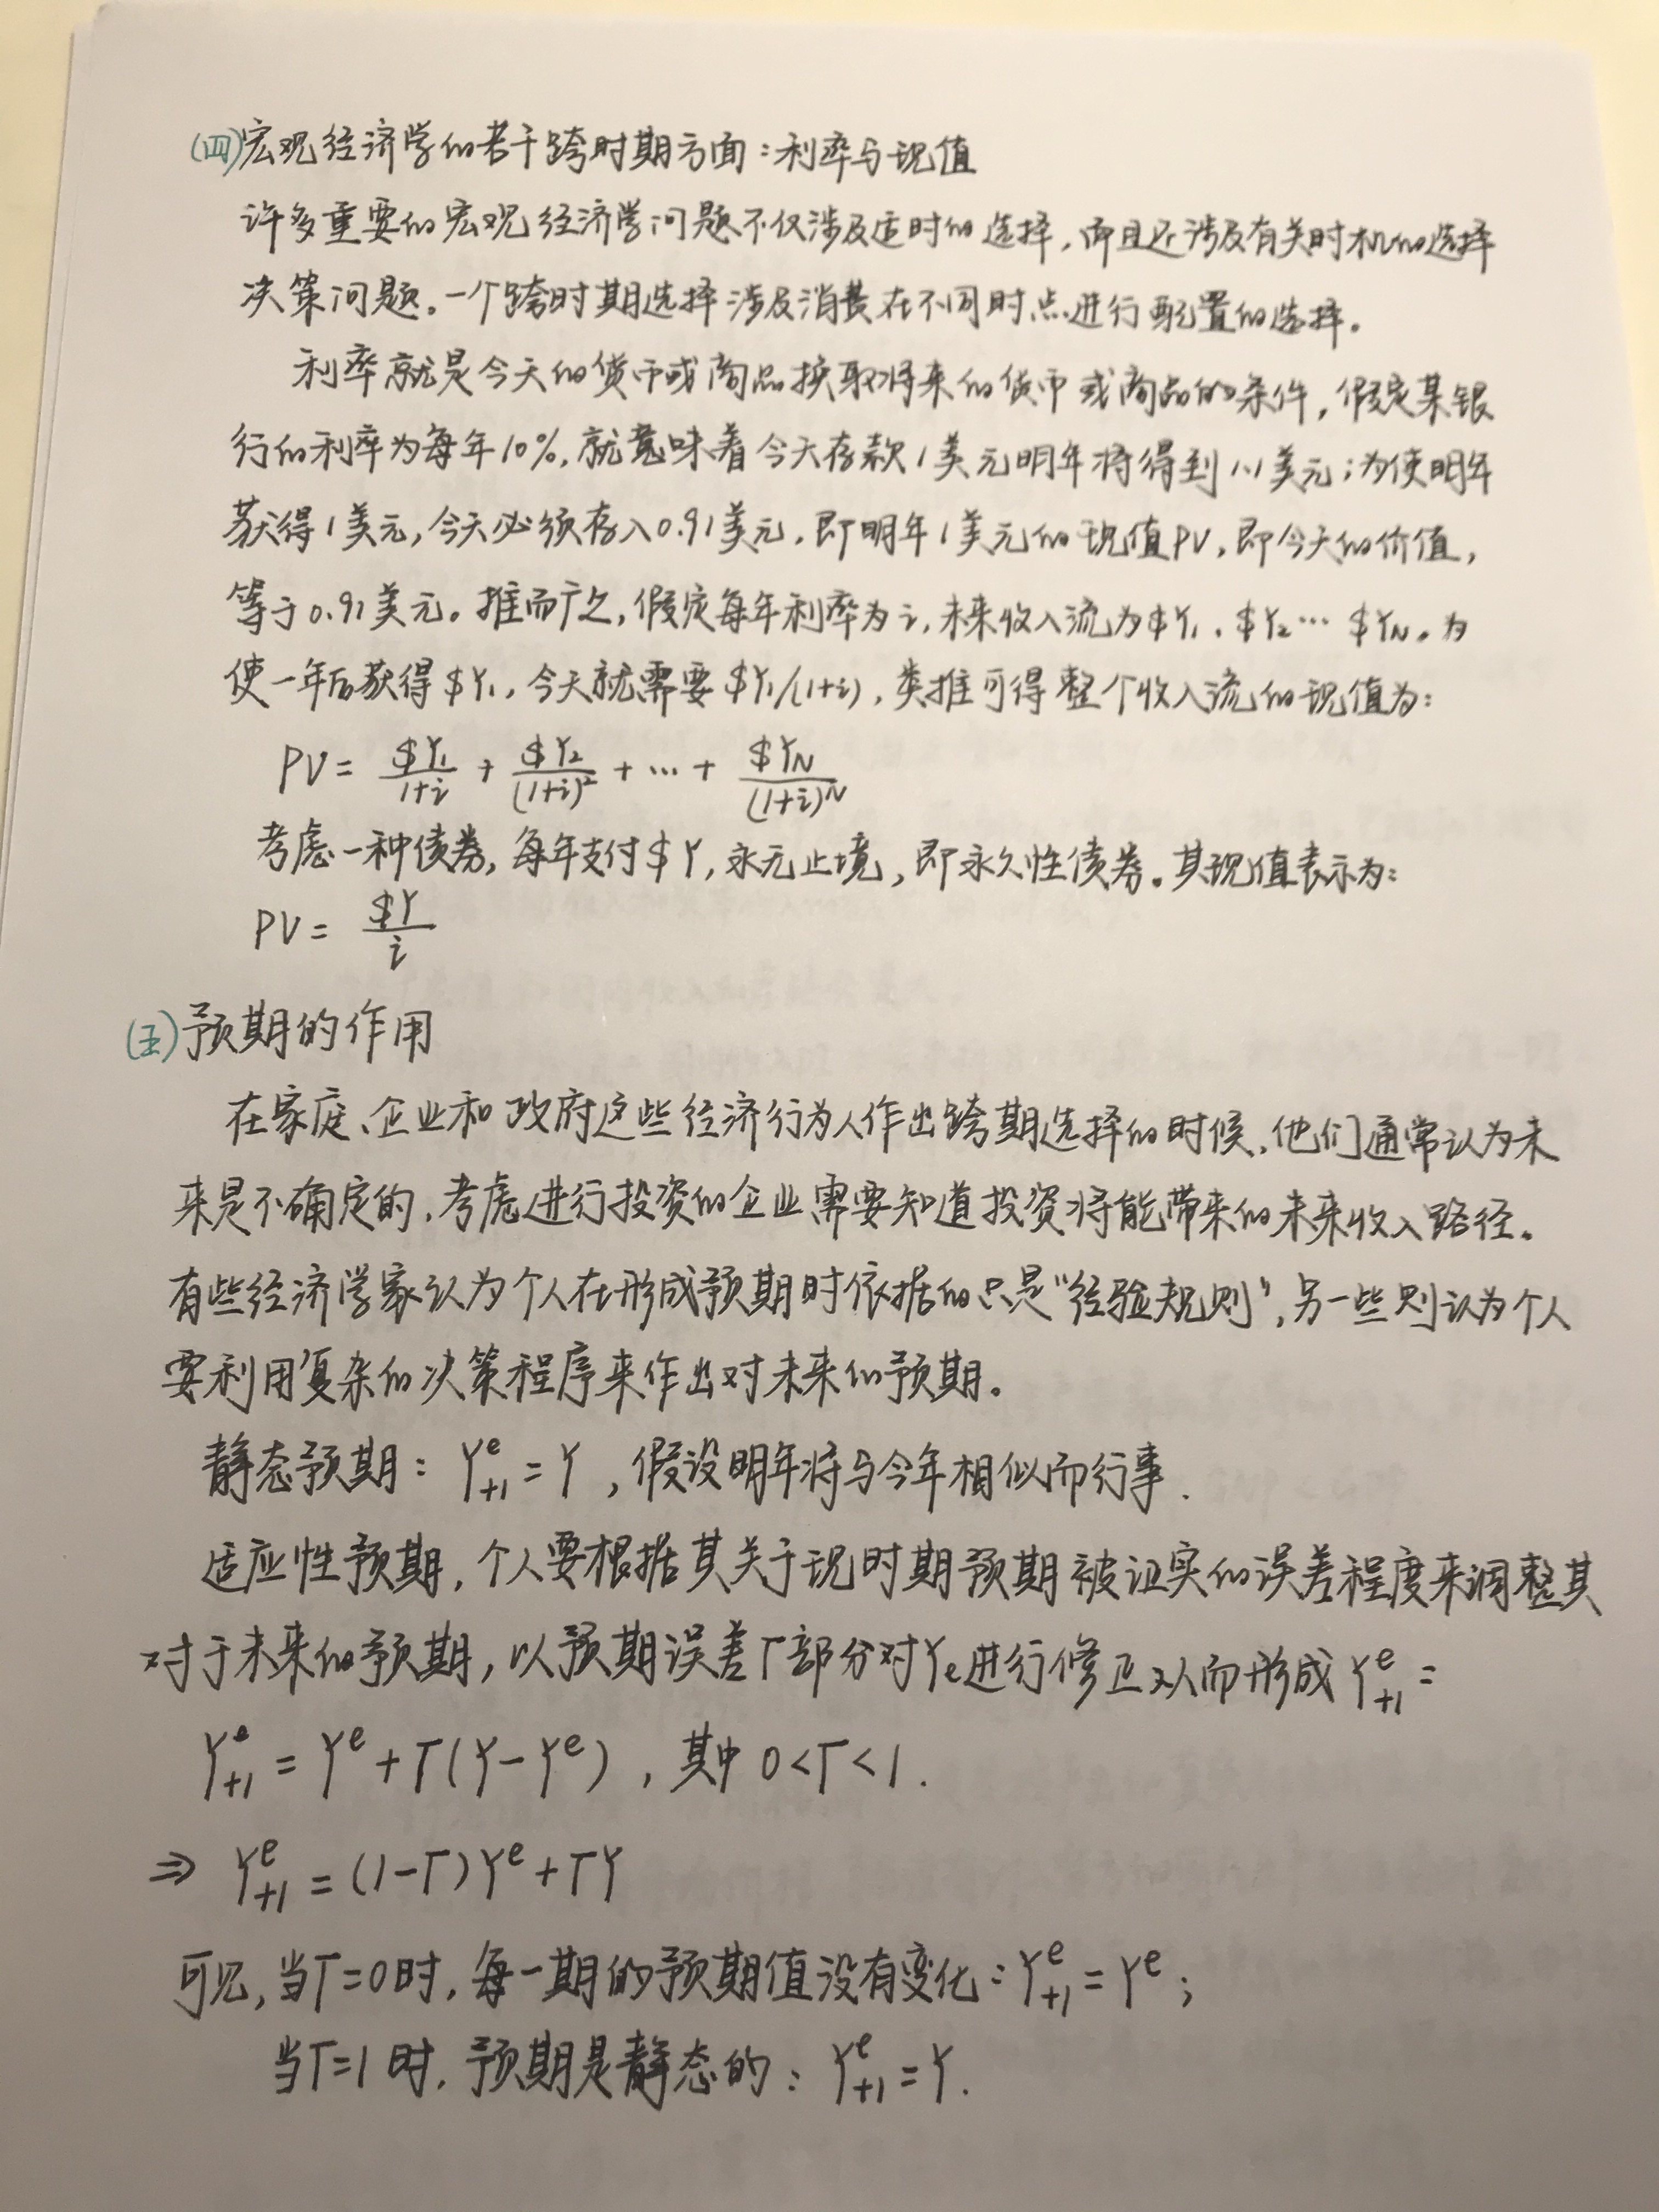 (四)宏观经济学的若干跨时期方面:利率与现值
许多重要的宏观经济学问题不仅涉及适时的选择,而且还涉及有关时机的选择
决策问题。一个跨时期选择涉及消费在不同时点进行配置的选择。
利率就是今天的货币或商品换取将来的货币或商品的条件,假定某银
行的利率为每年10%,就意味着今天存款1美元明年将得到1.1美元;为使明年
获得1美元,今天必须存入0.91美元,即明年1美元的现值PV,即今天的价值,
等于0.91美元。推而广之,假定每年利率为i,未来收入流为$Y₁、$Y₂…$Y_N。为
使一年后获得$Y₁,今天就需要$Y₁/(1+i),类推可得整个收入流的现值为:
PV = $Y₁/(1+i) + $Y₂/(1+i)² + … + $Y_N/(1+i)^N
考虑一种债券,每年支付$Y,永无止境,即永久性债券。其现值表示为:
PV = $Y/i
(五)预期的作用
在家庭、企业和政府这些经济行为人作出跨期选择的时候,他们通常认为未
来是不确定的,考虑进行投资的企业需要知道投资将能带来的未来收入路径。
有些经济学家认为个人在形成预期时依据的只是“经验规则”,另一些则认为个人
要利用复杂的决策程序来作出对未来的预期。
静态预期:Y^e_{+1} = Y,假设明年将与今年相似而行事.
适应性预期,个人要根据其关于现时期预期被证实的误差程度来调整其
对于未来的预期,以预期误差Γ部分对Ye进行修正从而形成Y^e_{+1}=
Y^e_{+1} = Y^e + Γ(Y - Y^e),其中 0<Γ<1.
⇒ Y^e_{+1} = (1-Γ)Y^e + ΓY
可见,当Γ=0时,每一期的预期值没有变化:Y^e_{+1} = Y^e;
当Γ=1时,预期是静态的:Y^e_{+1} = Y.